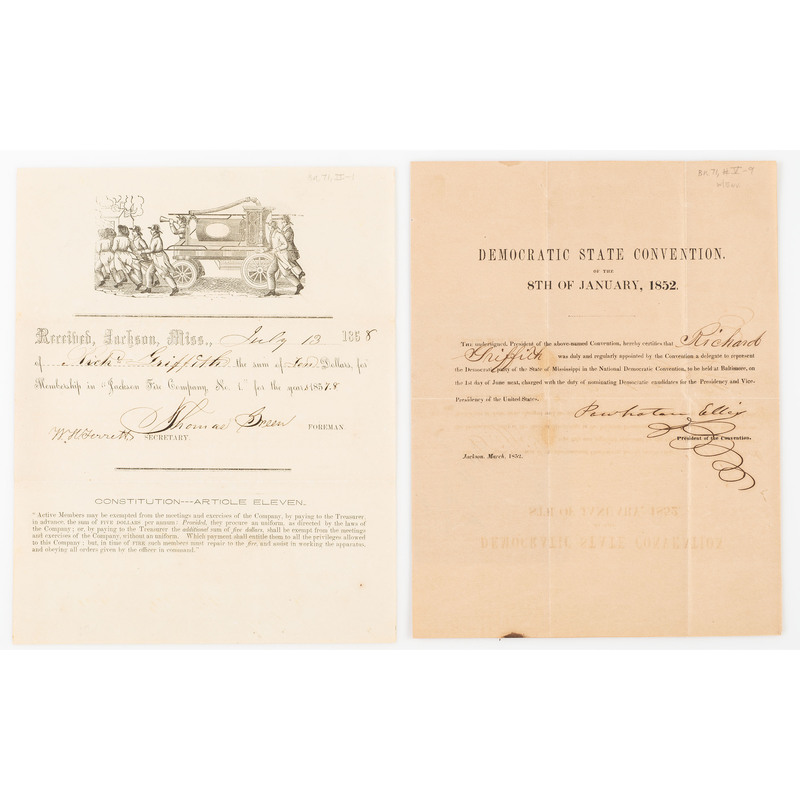 BK 71, II-1
Received, Jackson, Miss., July 13 1858
of Richd Griffith the sum of Ten Dollars, for
Membership in "Jackson Fire Company, No. 1," for the years 1857.8
Thomas Green FOREMAN.
SECRETARY.
CONSTITUTION---ARTICLE ELEVEN.
"Active Members may be exempted from the meetings and exercises of the Company, by paying to the Treasurer,
in advance, the sum of FIVE DOLLARS per annum: Provided, they procure an uniform, as directed by the laws of
the Company; or, by paying to the Treasurer the additional sum of five dollars, shall be exempt from the meetings
and exercises of the Company, without an uniform. Which payment shall entitle them to all the privileges allowed
to this Company; but, in time of FIRE such members must repair to the fire, and assist in working the apparatus,
and obeying all orders given by the officer in command."
BK 71, # V-9
DEMOCRATIC STATE CONVENTION.
OF THE
8TH OF JANUARY, 1852.
THE undersigned, President of the above-named Convention, hereby certifies that Richard
Griffith was duly and regularly appointed by the Convention a delegate to represent
the Democratic party of the State of Mississippi in the National Democratic Convention, to be held at Baltimore, on
the 1st day of June next, charged with the duty of nominating Democratic candidates for the Presidency and Vice-
Presidency of the United States.
Powhatan Ellis
President of the Convention.
Jackson, March, 1852.
8TH OF JANUARY, 1852.
DEMOCRATIC STATE CONVENTION